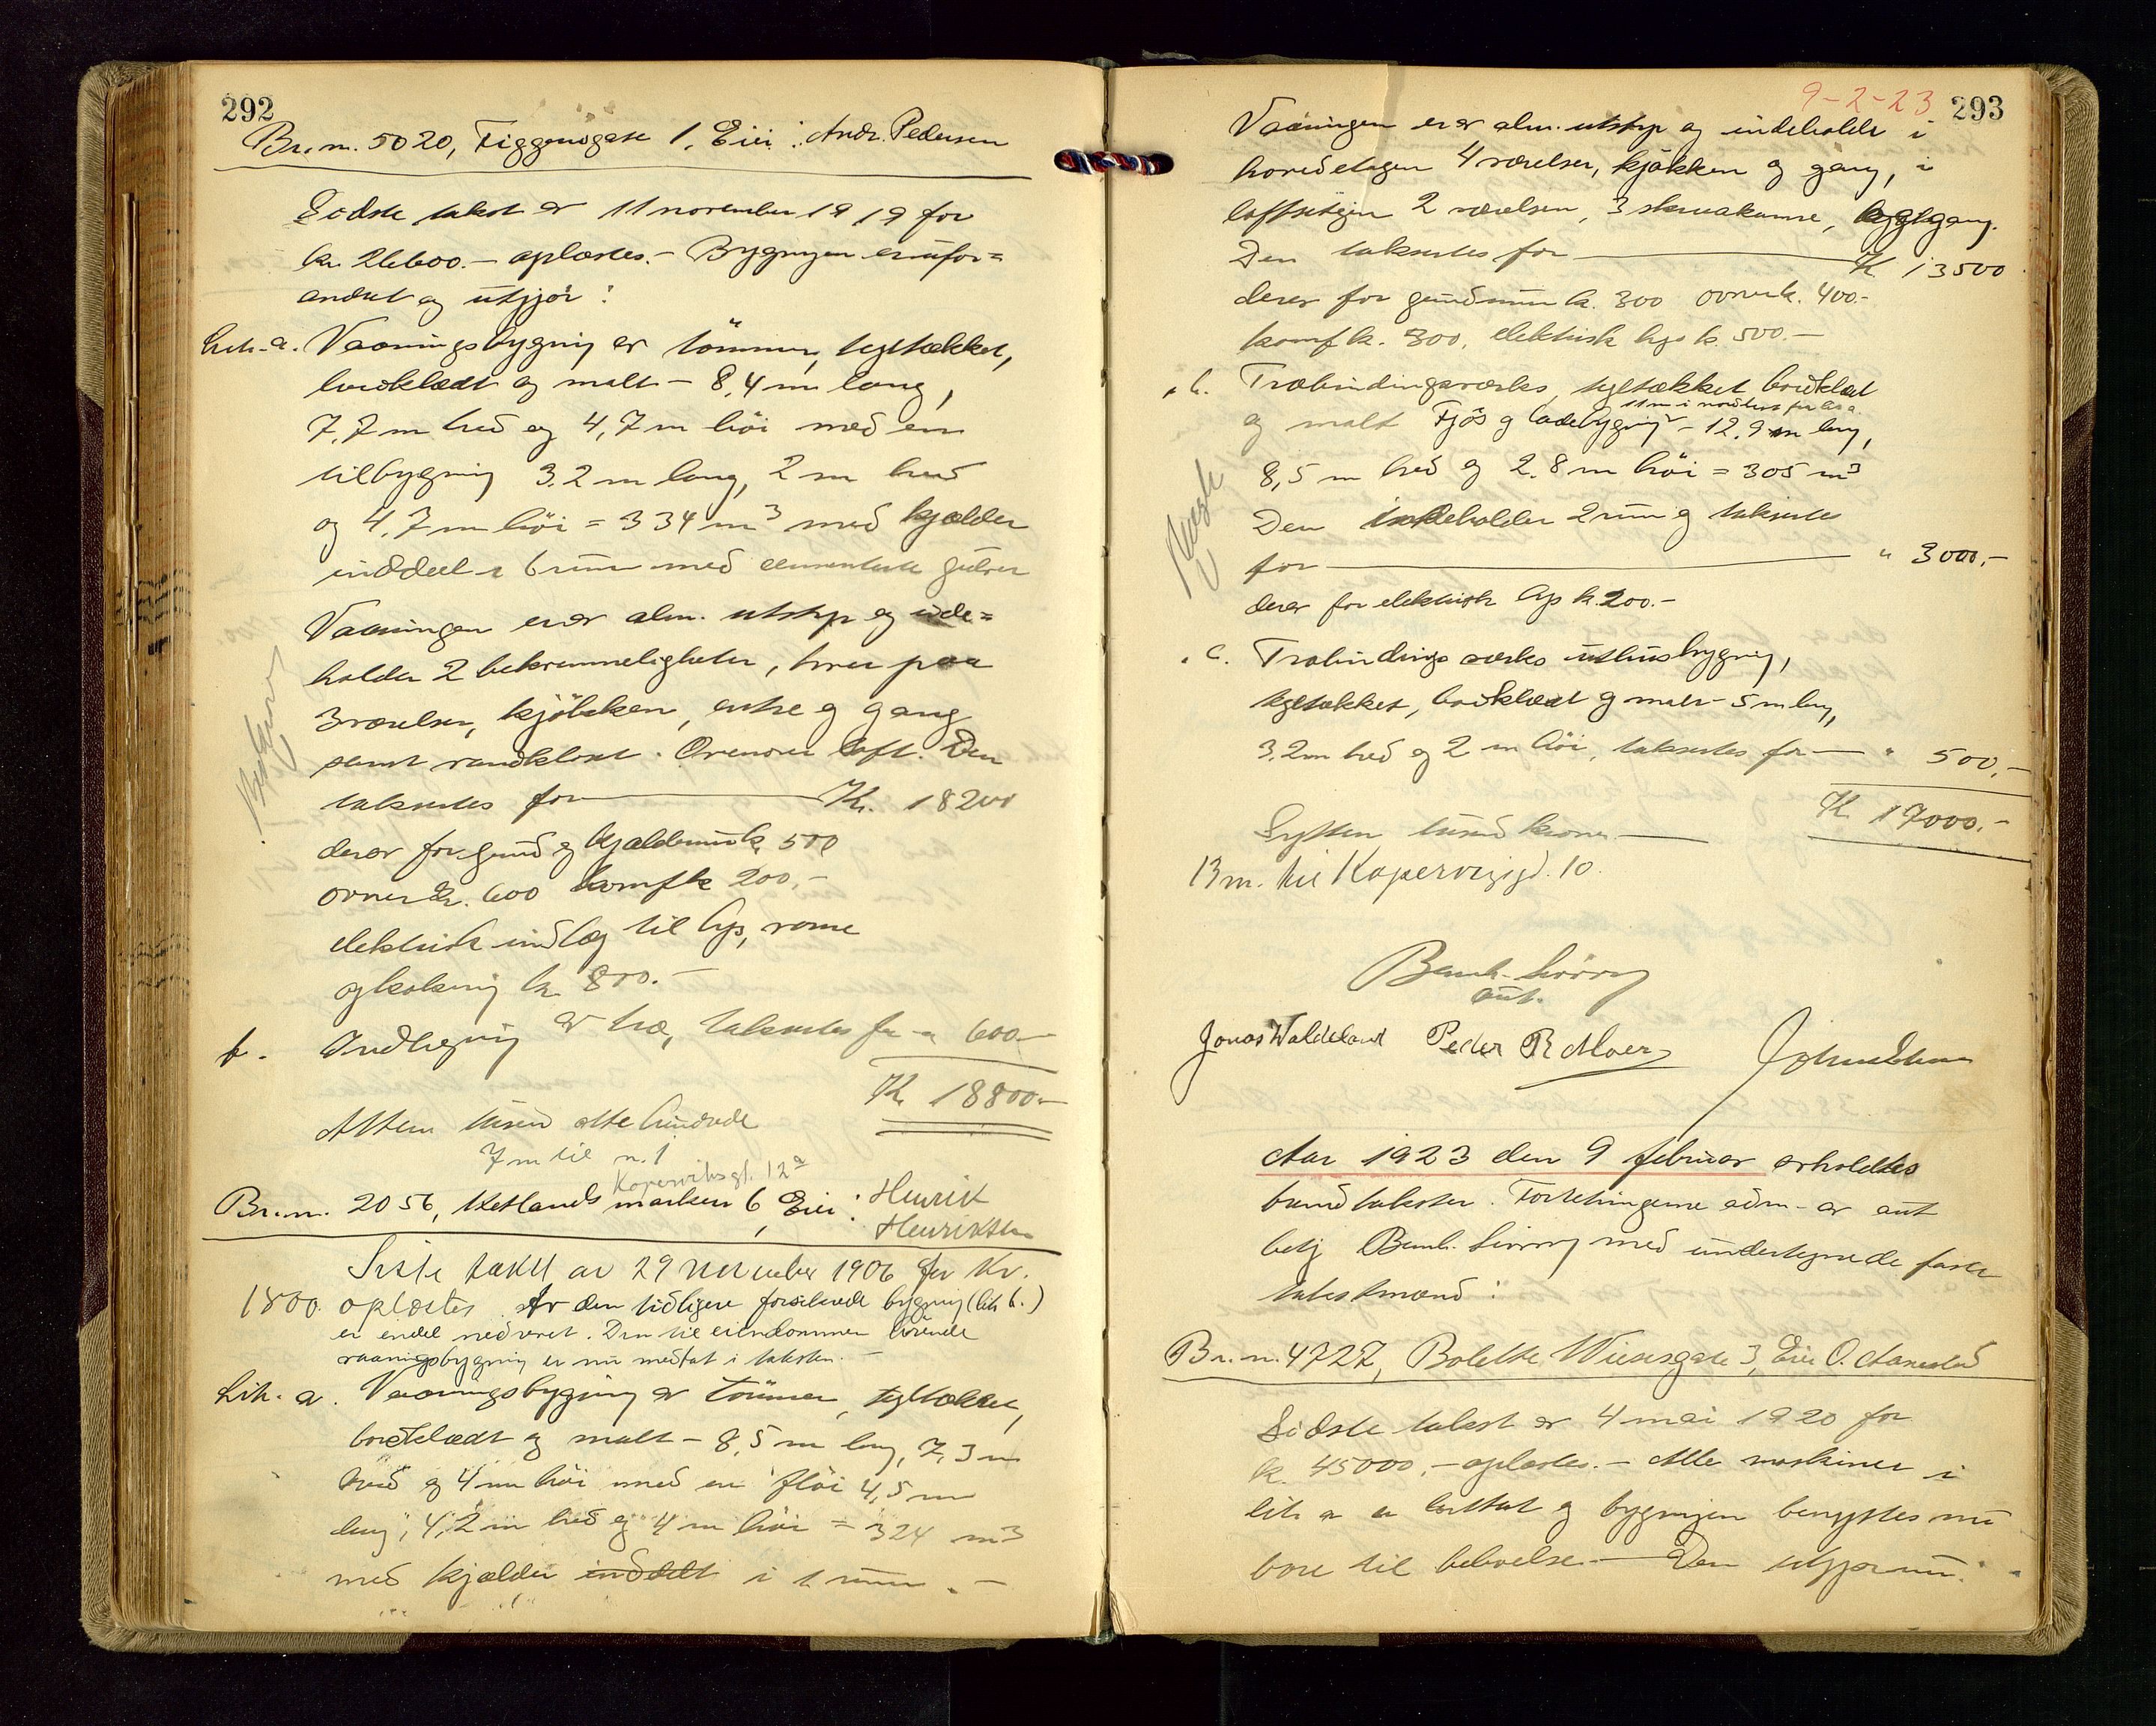 292
Br.nr. 5020, Figgensgate 1, Eier: Andr. Pedersen
Sidste takst av 11 november 1919 for
kr. 26600.- oplæstes. - Bygningen er ufor=
andret og utgjör:
Lit. a. Vaaningsbygning av tömmer, tegltækket,
bordklædt og malt - 8,4 m lang,
7,7 m bred og 4,7 m höi med en
tilbygning 3.2 m lang, 2 m bred
og 4,7 m höi = 334 m3 med kjælder
inddelt i 6 rum med cementerte gulver
Vaaningen er av alm. utstyr og inde=
holder 2 bekvemmeligheter, hver paa
3 værelser, kjökken, entre og gang
samt vandkloset. Ovenover loft. Den
takseres for Kr. 18200
derav for grund og kjældermur k. 500
ovner kr. 600 komf k 200.-
elektrisk indlæg til lys, varme
og kokning kr. 800.-
b. Indhegning av træ, takseres for " 600.-
Kr. 18800.-
Atten tusen otte hundrede
7 m til n. 1
Koperviksgt. 12a
Br.nr. 2056, Ketlandsmarken 6, Eier: Henrik
Henriksen
Siste takst av 29 november 1906 for Kr.
1800. oplæstes. Av den tidligere forsikrede bygning (lit b.)
er endel nedrevet. Den til eiendommen hörende
vaaningsbygning er nu medtat i taksten.-
Lit. a. Vaaningsbygning av tömmer, tegltækket,
bordklædt og malt - 8,5 m lang, 7,3 m
bred og 4 m höi med en flöi 4,5 m
lang, 4,2 m bred og 4 m höi = 324 m3
med kjælder inddelt i 1 rum.-
9-2-23
293
Vaaningen er av alm. utstyr og indeholder i
hovedetagen 4 værelser, kjökken og gang, i
loftsetagen 2 værelser, 3 skraakamre,
Den takseres for Kr. 13500
derav for grundmur k. 300 ovner k. 400.-
komf k. 300, elektrisk lys k. 500.-
" b. Træbindingsverks, tegltækket bordklædt
11 m i nordvest for lit a.
og malt Fjös og ladebygning - 12,9 m lang,
8,5 m bred og 2.8 m höi = 305 m3
Den indeholder 2 rum og takseres
for " 3000.-
derav for elektrisk lys k. 200.-
" c. Træbindingsverks uthusbygning,
tegltækket, bordklædt og malt - 5 m lang,
3,2 m bred og 2 m höi, takseres for " 500.-
Kr. 17000.-
Sytten tusend kroner
13 m. til Kopervigsgt. 10.
Bernh. Lövvig
aut.
Jonas Waldeland Peder R Moer
Aar 1923 den 9 februar avholdtes
brandtakster. Forretningerne adm. av aut
betj Bernh. Lövvig med undertegnede faste
takstmænd:
Br.nr. 4727, Bolette Wiesesgate 3, Eier O. Aanestad
Sidste takst av 4 mai 1920 for
k. 45000.- oplæstes.- Alle maskiner i
lit a er borttat og bygningen benyttes nu
bare til beboelse.- Den utgjör nu: